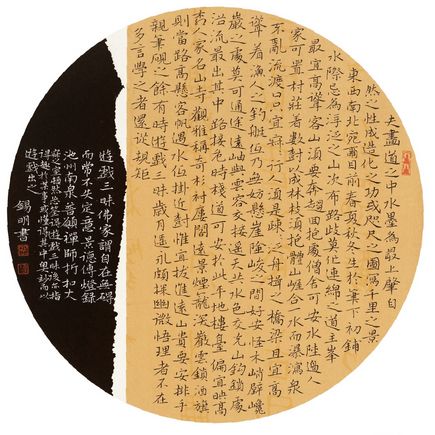 夫畫道之中水墨為最上肇自
然之性成造化之功或咫尺之圖寫千里之景
東西南北宛爾目前春夏秋冬生於筆下初鋪
水際忌為浮泛之山次布路歧莫作連綿之道主峯
最宜高聳客山須要奔趨迴抱處僧舍可安水陸邊人
家可置村莊著數樹以成林枝須抱體山崖合一水而瀑瀉泉
不亂流渡口只宜寂寂人行須是疎疎泛舟楫之橋梁且宜高
聳著漁人之釣艇低乃無妨懸崖險峻之間好安怪木峭壁巉
巖之處莫可通途遠岫與雲容交接遙天共水色交光山鉤鎖處
沿流最出其中路接危時棧道可安於此平地樓臺偏宜映高
人家名山寺觀雅稱奇杉村層閣遠景煙籠深巖雲鎖酒旗
則當路高懸客帆遇水低掛近對惟宜拔迸遠山貴要安排手
親筆硯之餘有時遊戲三昧歲月遙永頗探幽微悟理者不在
多言學之者還從規矩
遊戲三昧佛家謂自在無礙
而常不失定意景德傳燈錄
池州南泉普願禪師折扣大
遊戲三昧
遊戲出之 錫明書